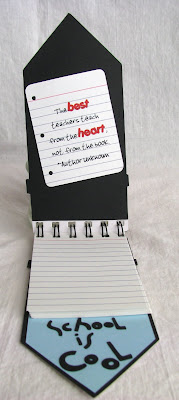 The best
teachers teach
from the heart,
not from the book.
~Author Unknown
School
is
Cool